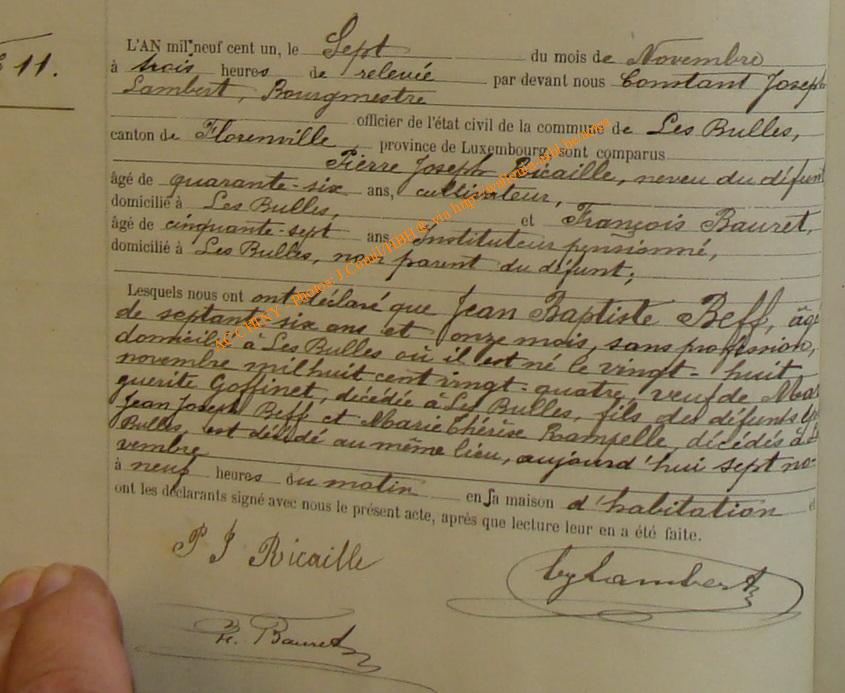 11.
L'AN mil neuf cent un, le Sept du mois de Novembre
à trois heures de relevée par devant nous Constant Joseph
Lambert, Bourgmestre
officier de l'état civil de la commune de Les Bulles,
canton de Florenville province de Luxembourg, sont comparus
Pierre Joseph Ricaille, neveu du défunt
âgé de quarante-six ans, cultivateur,
domicilié à Les Bulles, et François Bauret,
âgé de cinquante-sept ans Instituteur pensionné,
domicilié à Les Bulles, non parent du défunt;
Lesquels nous ont déclaré que Jean Baptiste Beff, âgé
de septante-six ans et onze mois, sans profession,
domicilié à Les Bulles où il est né le vingt-huit
novembre mil huit cent vingt-quatre, veuf de Mar
guerite Goffinet, décédée à Les Bulles, fils des défunts
Jean Joseph Beff et Marie Thérèse Rampelle, décédés à
Bulles, est décédé au même lieu, aujourd'hui sept no-
vembre
à neuf heures du matin en sa maison d'habitation et
ont les déclarants signé avec nous le présent acte, après que lecture leur en a été faite.
P J Ricaille
Lambert
F. Bauret
AC CHINY Photos J.Comil/HBH @ via